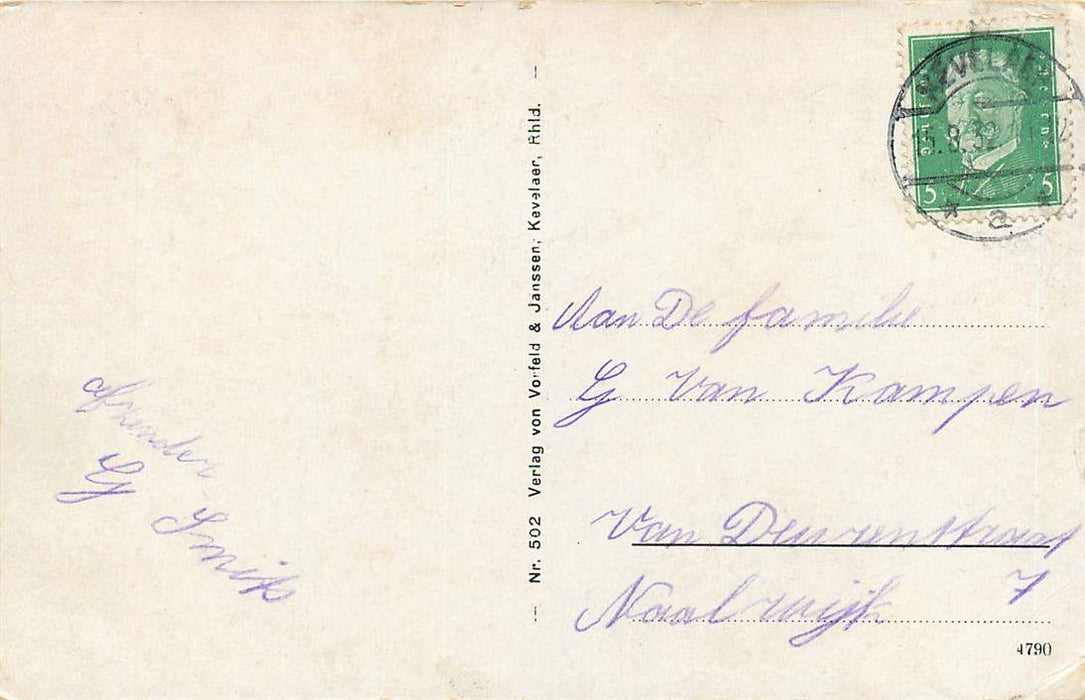 KEVELAER
15.8.32
* a *
5
5
Aan De familie
G van Kampen
van Deurenstraat
7
Naalwijk
afzender
G Smik
-- Nr. 502 Verlag von Vorfeld & Janssen, Kevelaer, Rhld. --
4790